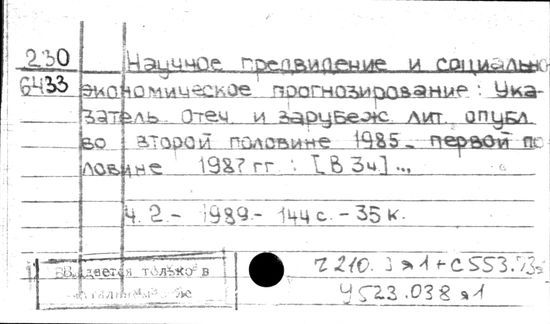 230 Научное предвидение и социально
6433 экономическое прогнозирование: Ука
затель отеч. и зарубеж. лит. опубл.
во второй половине 1985- первой по
ловине 1987 гг: [В 3ч]...
Ч. 2. - 1989. - 144 с. - 35 к.
Выдается только в
Ч210. я1 + С553.
У523.038 я1